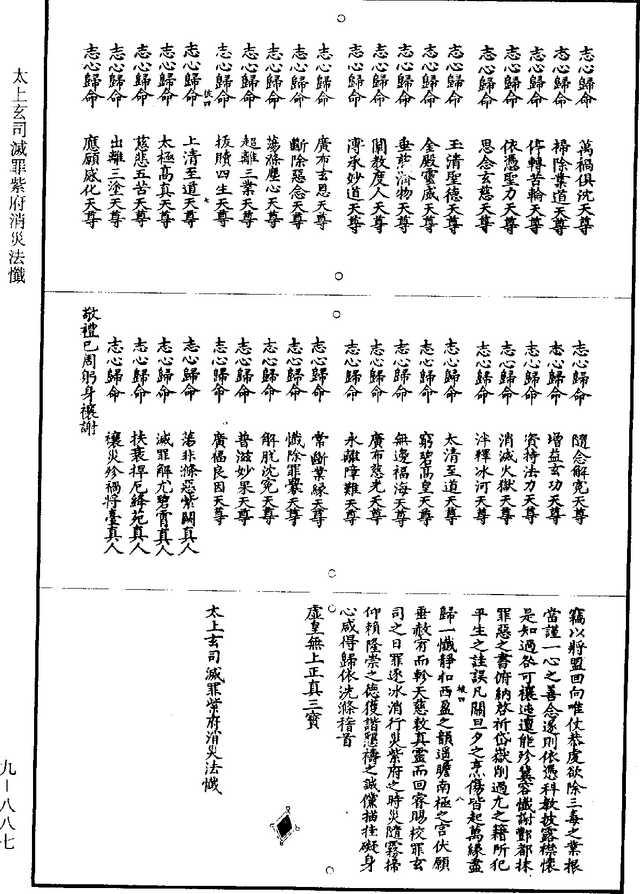 太上玄司滅罪紫府消災法懺
志心歸命　萬禍俱沈天尊
志心歸命　掃除業道天尊
志心歸命　停轉苦輪天尊
志心歸命　依憑聖力天尊
志心歸命　思念玄慈天尊
志心歸命　玉清聖德天尊
志心歸命　金殿靈威天尊
志心歸命　垂慈濟物天尊
志心歸命　開教度人天尊
志心歸命　溥承妙道天尊
志心歸命　廣布玄恩天尊
志心歸命　斷除惡念天尊
志心歸命　蕩滌塵心天尊
志心歸命　超離三業天尊
志心歸命　拔贖四生天尊
志心歸命　上清至道天尊
志心歸命　太極高真天尊
志心歸命　慈悲五苦天尊
志心歸命　出離三塗天尊
志心歸命　應願感化天尊
志心歸命　隨念解冤天尊
志心歸命　增益玄功天尊
志心歸命　資持法力天尊
志心歸命　消滅火獄天尊
志心歸命　泮釋冰河天尊
志心歸命　太清至道天尊
志心歸命　窮碧高皇天尊
志心歸命　無邊福海天尊
志心歸命　廣布慈光天尊
志心歸命　永離障難天尊
志心歸命　常斷業緣天尊
志心歸命　懺除罪累天尊
志心歸命　解脫沈冤天尊
志心歸命　普滋妙果天尊
志心歸命　廣福良因天尊
志心歸命　蕩非滌惡紫闕真人
志心歸命　滅罪解尤碧霄真人
志心歸命　扶衰捍厄絳苑真人
志心歸命　禳災殄禍將臺真人
敬禮已周躬身禳謝
竊以將盟回向唯仗恭虔欲除三毒之業根
當謹一心之善念遂則依憑科教披露襟懷
是知過咎可禳迍邅能殄冀容懺謝酆都抹
罪惡之書俯納啓祈岱嶽削過尤之籍所犯
平生之詿誤凡關旦夕之烹傷皆起萬緣盡
歸一懺靜扣西盈之韻遥瞻南極之宮伏願
垂赦宥而軫天慈敕真靈而回睿賜校罪玄
司之日罪逐冰消行災紫府之時災隨霧掃
仰賴隆崇之德獲諧懇禱之誠儻描挂礙身
心咸得歸依洗滌稽首
虛皇無上正真三寶
太上玄司滅罪紫府消災法懺
九—八八七